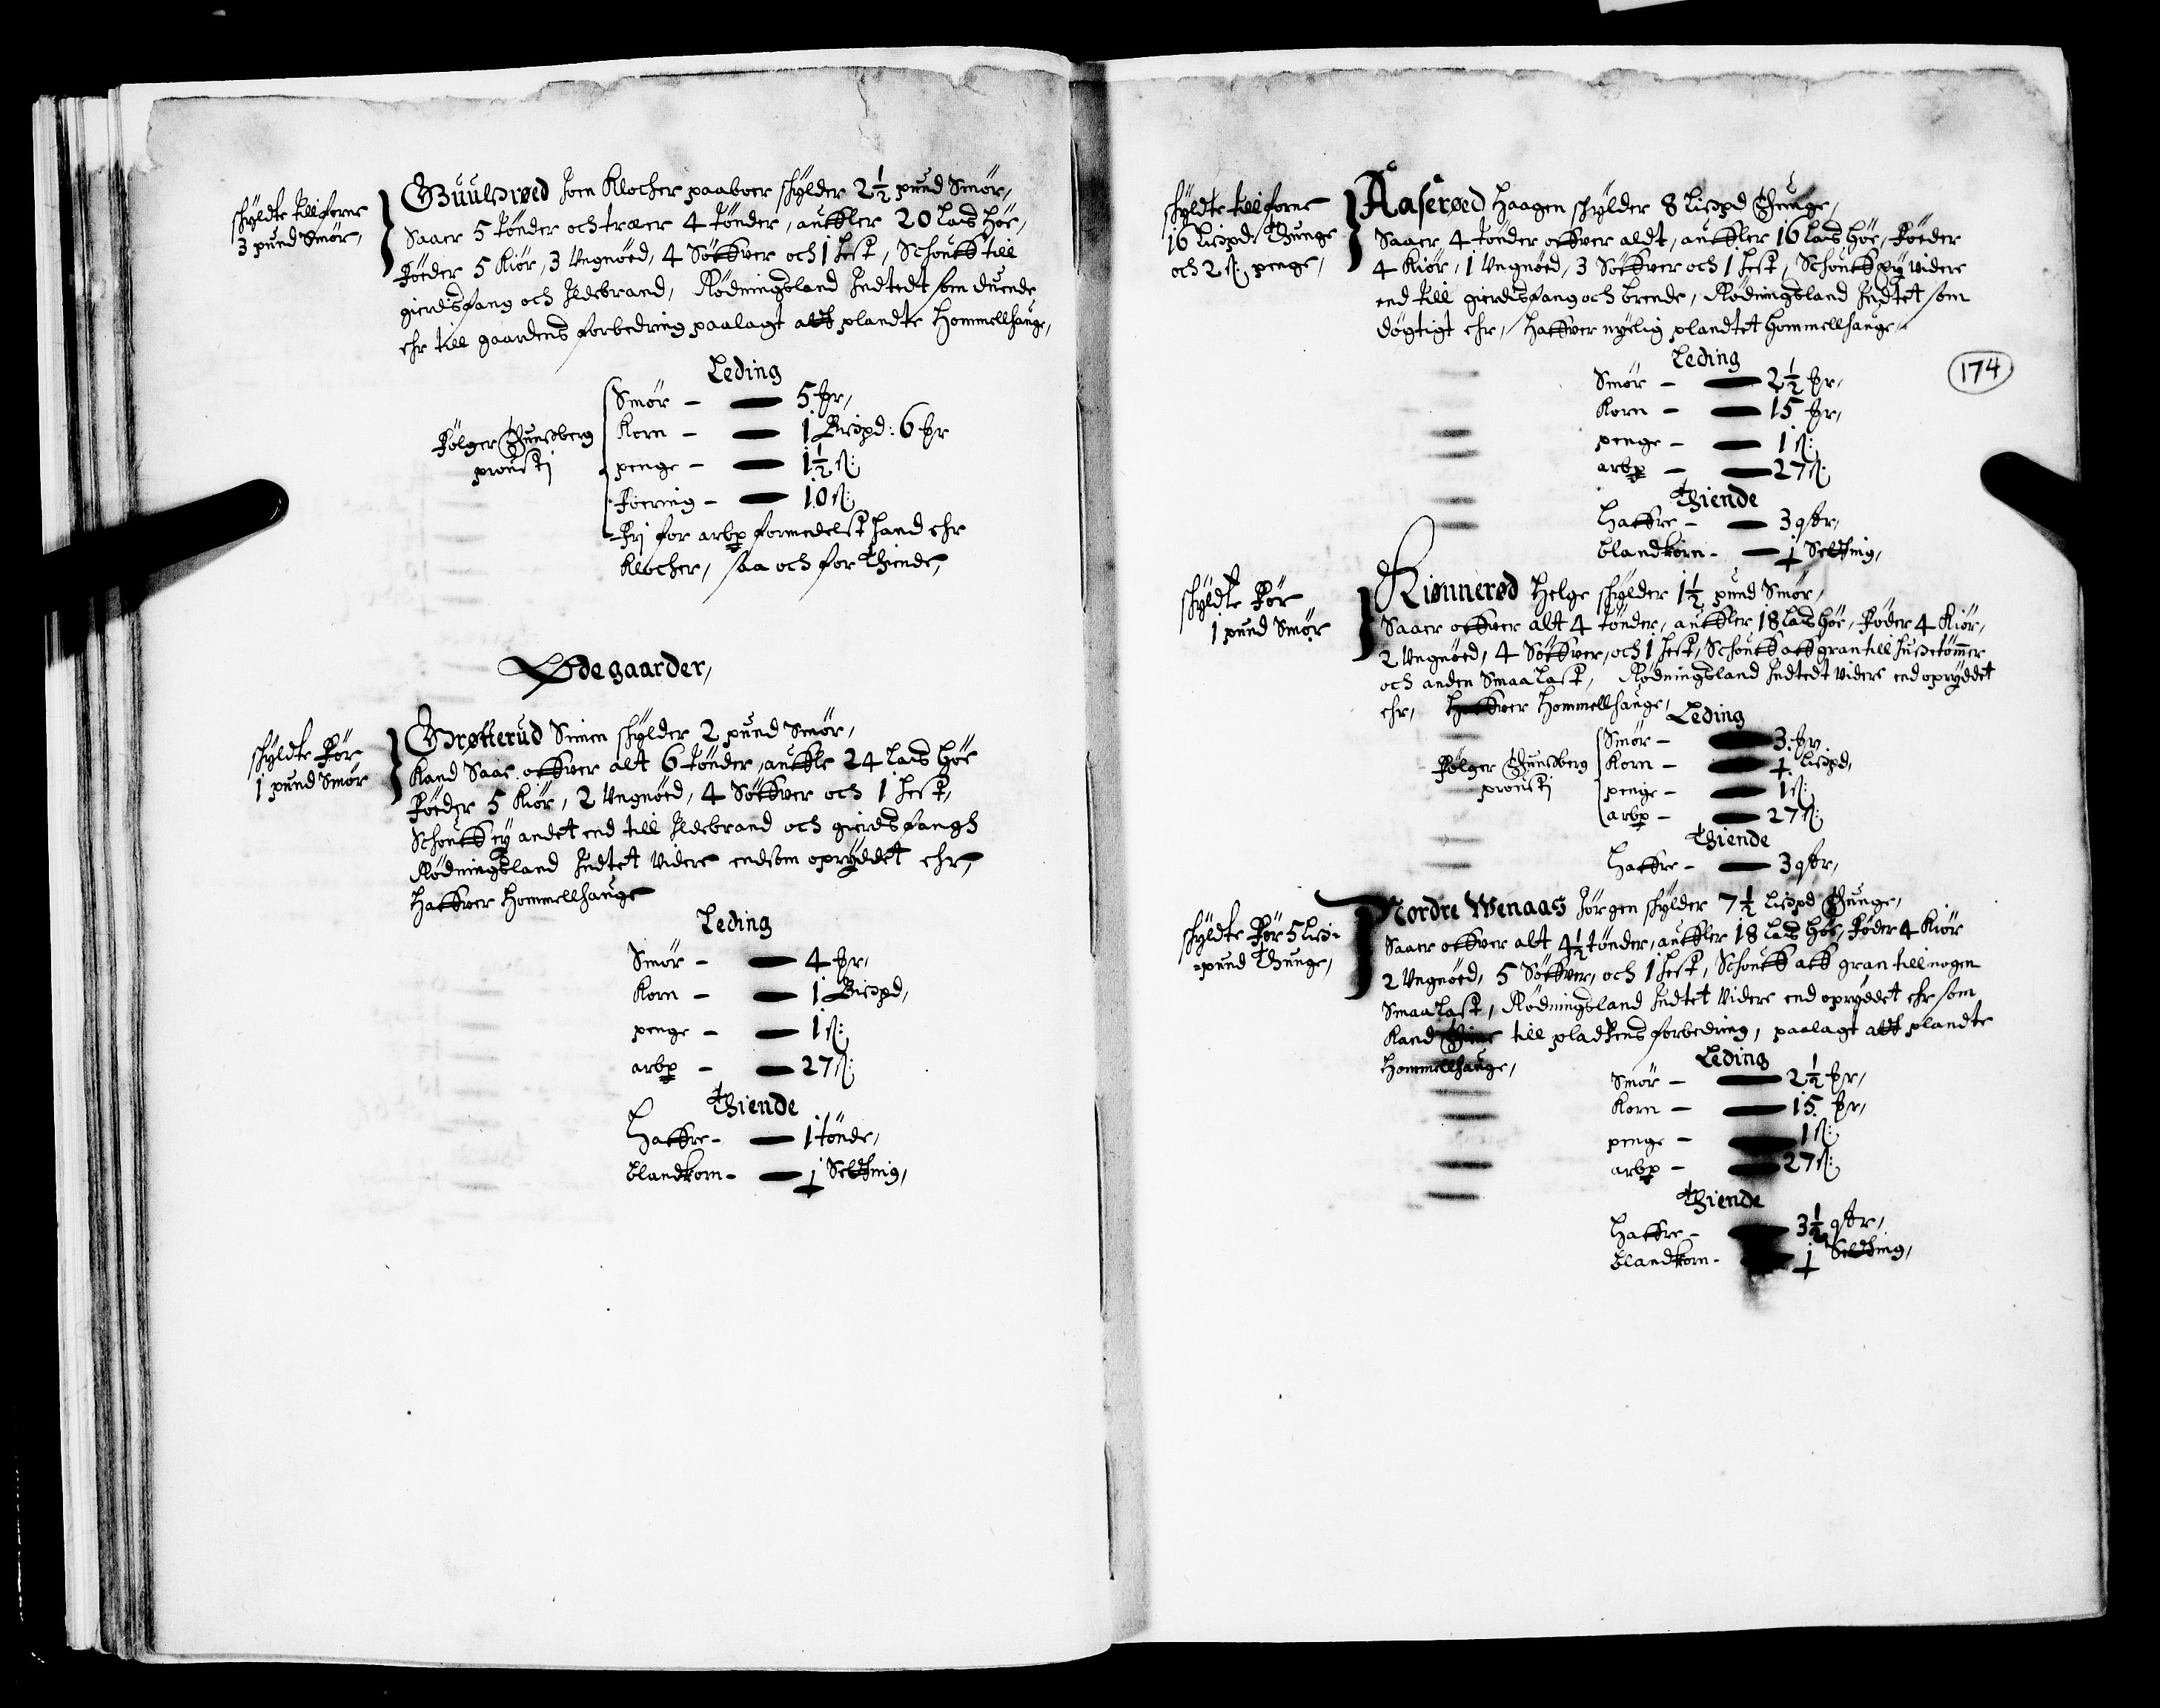 skyldte tillforne
3 pund Smör,
Guulsrøed Joen Klocker paaboer skylder 2½ pund Smör,
Saaer 5 tönder och træer 4 tönder, aufler 20 lass höe,
Föeder 5 Kiör, 3 Ungnöed, 4 Söffuer och 1 hest, Schouff till
gierdsfang och Ildebrand, Rödningsland Indtedt som duende
ehr till gaardens forbedring paalagt att plandte Hommellhauge,
Leding
Følger Thunsberg
prousti
Smör - 5 hr,
Korn - 1 Bispd: 6 hr
penge - 1½ ß:
Foering - 10 ß:
Frj for arbp formedelst hand ehr
Klocker, saa och for Thiende,
Ødegaarder,
skyldte För
1 pund Smör
Grøtterud Simen skylder 2 pund Smör,
Kand Saae offuer alt 6 tönder, aufle 24 lass höe
Föeder 5 Kiör, 2 Ungnöed, 4 Söffuer och 1 hest,
Schouff ey andet end till Ildebrand och gierdsfangh
Rödningsland Indtet videre endsom opryddet ehr,
Haffuer Hommellhauge
Leding
Smör - 4 hr,
Korn - 1 Bispd,
penge - 1 ß:
arbp - 27 ß:
Thiende
Haffre - 1 tönde,
blandkorn - 1 Setting,
174
skyldte tillforne
16 Lispd: Thunge
och 2 ß: penge,
Aaserøed Haagen skylder 8 Lispd Thunge,
Saaer 4 tönder offuer aldt, aufler 16 lass höe, Föeder
4 Kiör, 1 Ungnöed, 3 Söffuer och 1 hest, Schouff ey videre
end till gierdsfang och brende, Rödningsland Indtet som
døgtigt ehr, haffuer nyelig plandtet hommellhauge,
Leding
Smör - 2½ hr,
Korn - 15 hr,
penge - 1 ß:
arbp - 27 ß:
Thiende
Haffre - 3 qtr,
blandkorn - 1 Setting,
skyldte För
1 pund Smör
Kiønnerød Helge skylder 1½ pund Smör,
Saaer offuer alt 4 tönder, aufler 18 lass höe, Föder 4 Kiör,
2 Ungnöed, 4 Söffuer, och 1 hest, Schouff aff gran till hussetömmer
och anden Smaa last, Rödningsland Indtedt videre end opryddet
ehr, Haffuer Hommellhauge,
Leding
Følger Thunsberg
prousti
Smör - 3 hr
Korn - 1 Lispd,
penge - 1 ß:
arbp - 27 ß:
Thiende
Haffre - 3 qtr,
skyldte För 5 Lis-
pund Thunge,
Nordre Wenaas Jörgen skylder 7½ Lispd Thunge,
Saaer offuer alt 4½ tönder, aufler 18 lass höe, Föder 4 Kiör
2 Ungnöed, 5 Söffuer, och 1 hest, Schouff aff gran till nogen
Smaa last, Rödningsland Indtet videre end opryddet ehr som
Kand thiene till pladtzens forbedring, paalagt att plandte
Hommellhauge,
Leding
Smör - 2½ hr,
Korn - 15 hr,
penge - 1 ß:
arbp - 27 ß:
Thiende
Haffre - 3½ qtr,
blandkorn - 1 Setting,